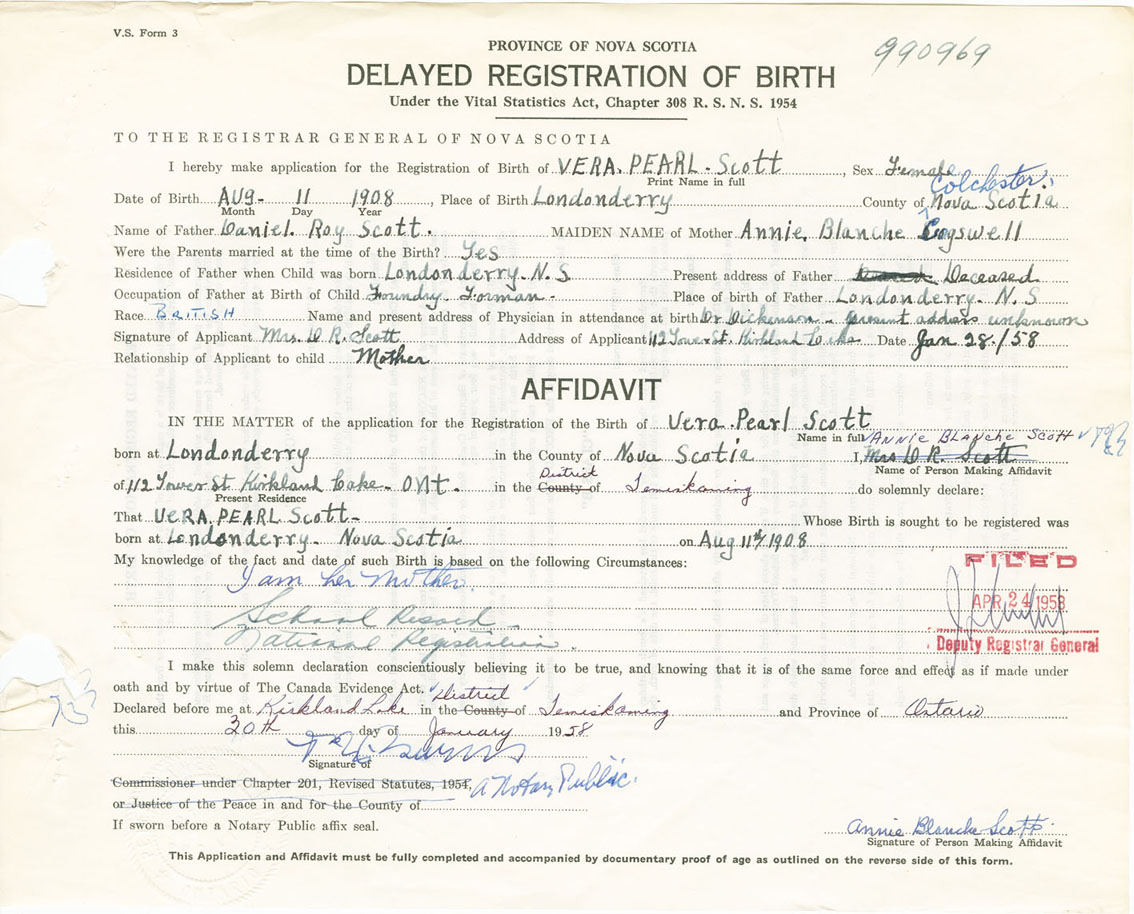 V.S. Form 3
990969
PROVINCE OF NOVA SCOTIA
DELAYED REGISTRATION OF BIRTH
Under the Vital Statistics Act, Chapter 308 R. S. N. S. 1954
TO THE REGISTRAR GENERAL OF NOVA SCOTIA
I hereby make application for the Registration of Birth of VERA. PEARL. Scott, Sex Female
Print Name in full
Colchester
Date of Birth AUG- 11 1908, Place of Birth Londonderry County of Nova Scotia
Month Day Year
Name of Father Daniel. Roy Scott. MAIDEN NAME of Mother Annie. Blanche Cogswell
Were the Parents married at the time of the Birth? Yes
Residence of Father when Child was born Londonderry. N. S Present address of Father Deceased
Occupation of Father at Birth of Child Foundry Forman - Place of birth of Father Londonderry. N. S
Race BRITISH Name and present address of Physician in attendance at birth Dr Dickenson - present address unknown
Signature of Applicant Mrs. D R. Scott Address of Applicant 112 Tower St. Kirkland Lake Date Jan 28./58
Relationship of Applicant to child Mother
AFFIDAVIT
IN THE MATTER of the application for the Registration of the Birth of Vera. Pearl Scott
Name in full ANNIE BLANCHE SCOTT
born at Londonderry in the County of Nova Scotia I, Mrs D R. Scott
Name of Person Making Affidavit
District
of 112 Tower St Kirkland Lake - Ont. in the County of Temiskaming do solemnly declare:
Present Residence
That VERA. PEARL Scott- Whose Birth is sought to be registered was
born at Londonderry - Nova Scotia on Aug 11th/1908
My knowledge of the fact and date of such Birth is based on the following Circumstances:
I am her Mother.
School Record
National Registration.
FILED
APR 24 1958
Deputy Registrar General
I make this solemn declaration conscientiously believing it to be true, and knowing that it is of the same force and effect as if made under
oath and by virtue of The Canada Evidence Act.
District
Declared before me at Kirkland Lake in the County of Temiskaming and Province of Ontario
this 30th day of January 1958
Signature of
Commissioner under Chapter 201, Revised Statutes, 1954, a Notary Public.
or Justice of the Peace in and for the County of
If sworn before a Notary Public affix seal.
Annie Blanche Scott
Signature of Person Making Affidavit
This Application and Affidavit must be fully completed and accompanied by documentary proof of age as outlined on the reverse side of this form.